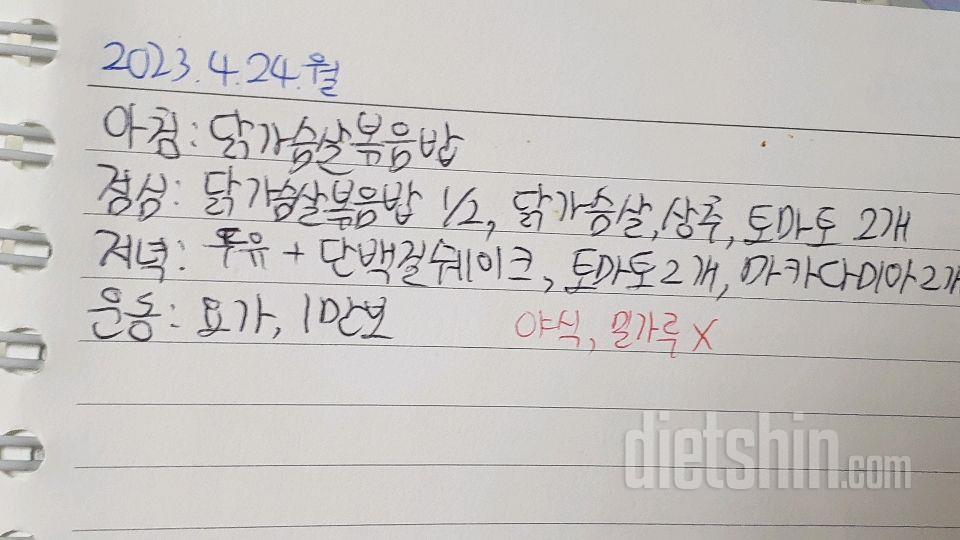 2023.4.24.월
아침: 닭가슴살볶음밥
점심: 닭가슴살볶음밥 1/2, 닭가슴살, 상추, 토마토 2개
저녁: 두유 + 단백질쉐이크, 토마토2개, 마카다미아2개
운동: 요가, 1만보
야식, 밀가루 X
dietshin.com